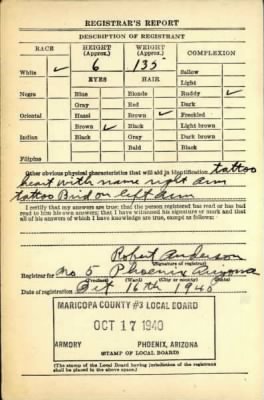 REGISTRAR'S REPORT
DESCRIPTION OF REGISTRANT
RACE HEIGHT (Approx.) WEIGHT (Approx.) COMPLEXION
6 135
White ✓ EYES HAIR Sallow
Light
Negro Blue Blonde Ruddy ✓
Gray Red Dark
Oriental Hazel Brown ✓ Freckled
Brown ✓ Black Light brown
Indian Black Gray Dark brown
Bald Black
Filipino
Other obvious physical characteristics that will aid in identification tattoo
heart with name right arm
tattoo Bird on left arm
I certify that my answers are true; that the person registered has read or has had
read to him his own answers; that I have witnessed his signature or mark and that
all of his answers of which I have knowledge are true, except as follows:
Robert Anderson
(Signature of registrar)
Registrar for No. 5 Phoenix Arizona
(Precinct) (State)
Date of registration Oct 16th 1940
MARICOPA COUNTY #3 LOCAL BOARD
OCT 17 1940
ARMORY PHOENIX, ARIZONA
STAMP OF LOCAL BOARD
(The stamp of the Local Board having jurisdiction of the registrant
shall be placed in the above space.)